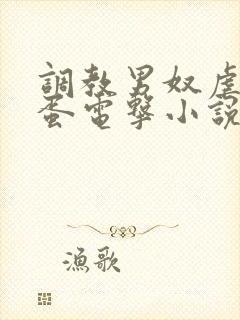 調教男奴虐
蛋電擊小説
漁歌